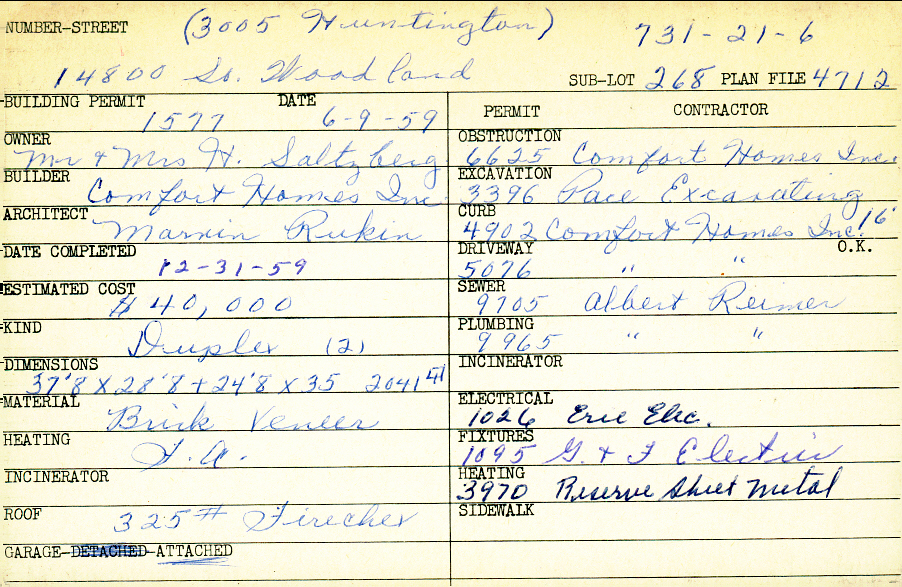 NUMBER-STREET (3005 Huntington) 731-21-6
14800 So. Woodland SUB-LOT 268 PLAN FILE 4712
BUILDING PERMIT 1577 DATE 6-9-59
PERMIT CONTRACTOR
OWNER Mr & Mrs H. Saltzberg
OBSTRUCTION 6625 Comfort Homes Inc.
BUILDER Comfort Homes Inc
EXCAVATION 3396 Pace Excavating
ARCHITECT Marvin Rukin
CURB 4902 Comfort Homes Inc. 16'
DATE COMPLETED 12-31-59
DRIVEWAY 5076 " " O.K.
ESTIMATED COST $40,000
SEWER 9705 Albert Reimer
KIND Duplex (2)
PLUMBING 9965 " "
DIMENSIONS 37'8 X 28'8 + 24'8 X 35 2041
INCINERATOR
MATERIAL Brick Veneer
ELECTRICAL 1026 Erie Elec.
HEATING F.A.
FIXTURES 1095 G. & F Electric
INCINERATOR
HEATING 3970 Reserve Sheet Metal
ROOF 325# Firechex
SIDEWALK
GARAGE-DETACHED-ATTACHED